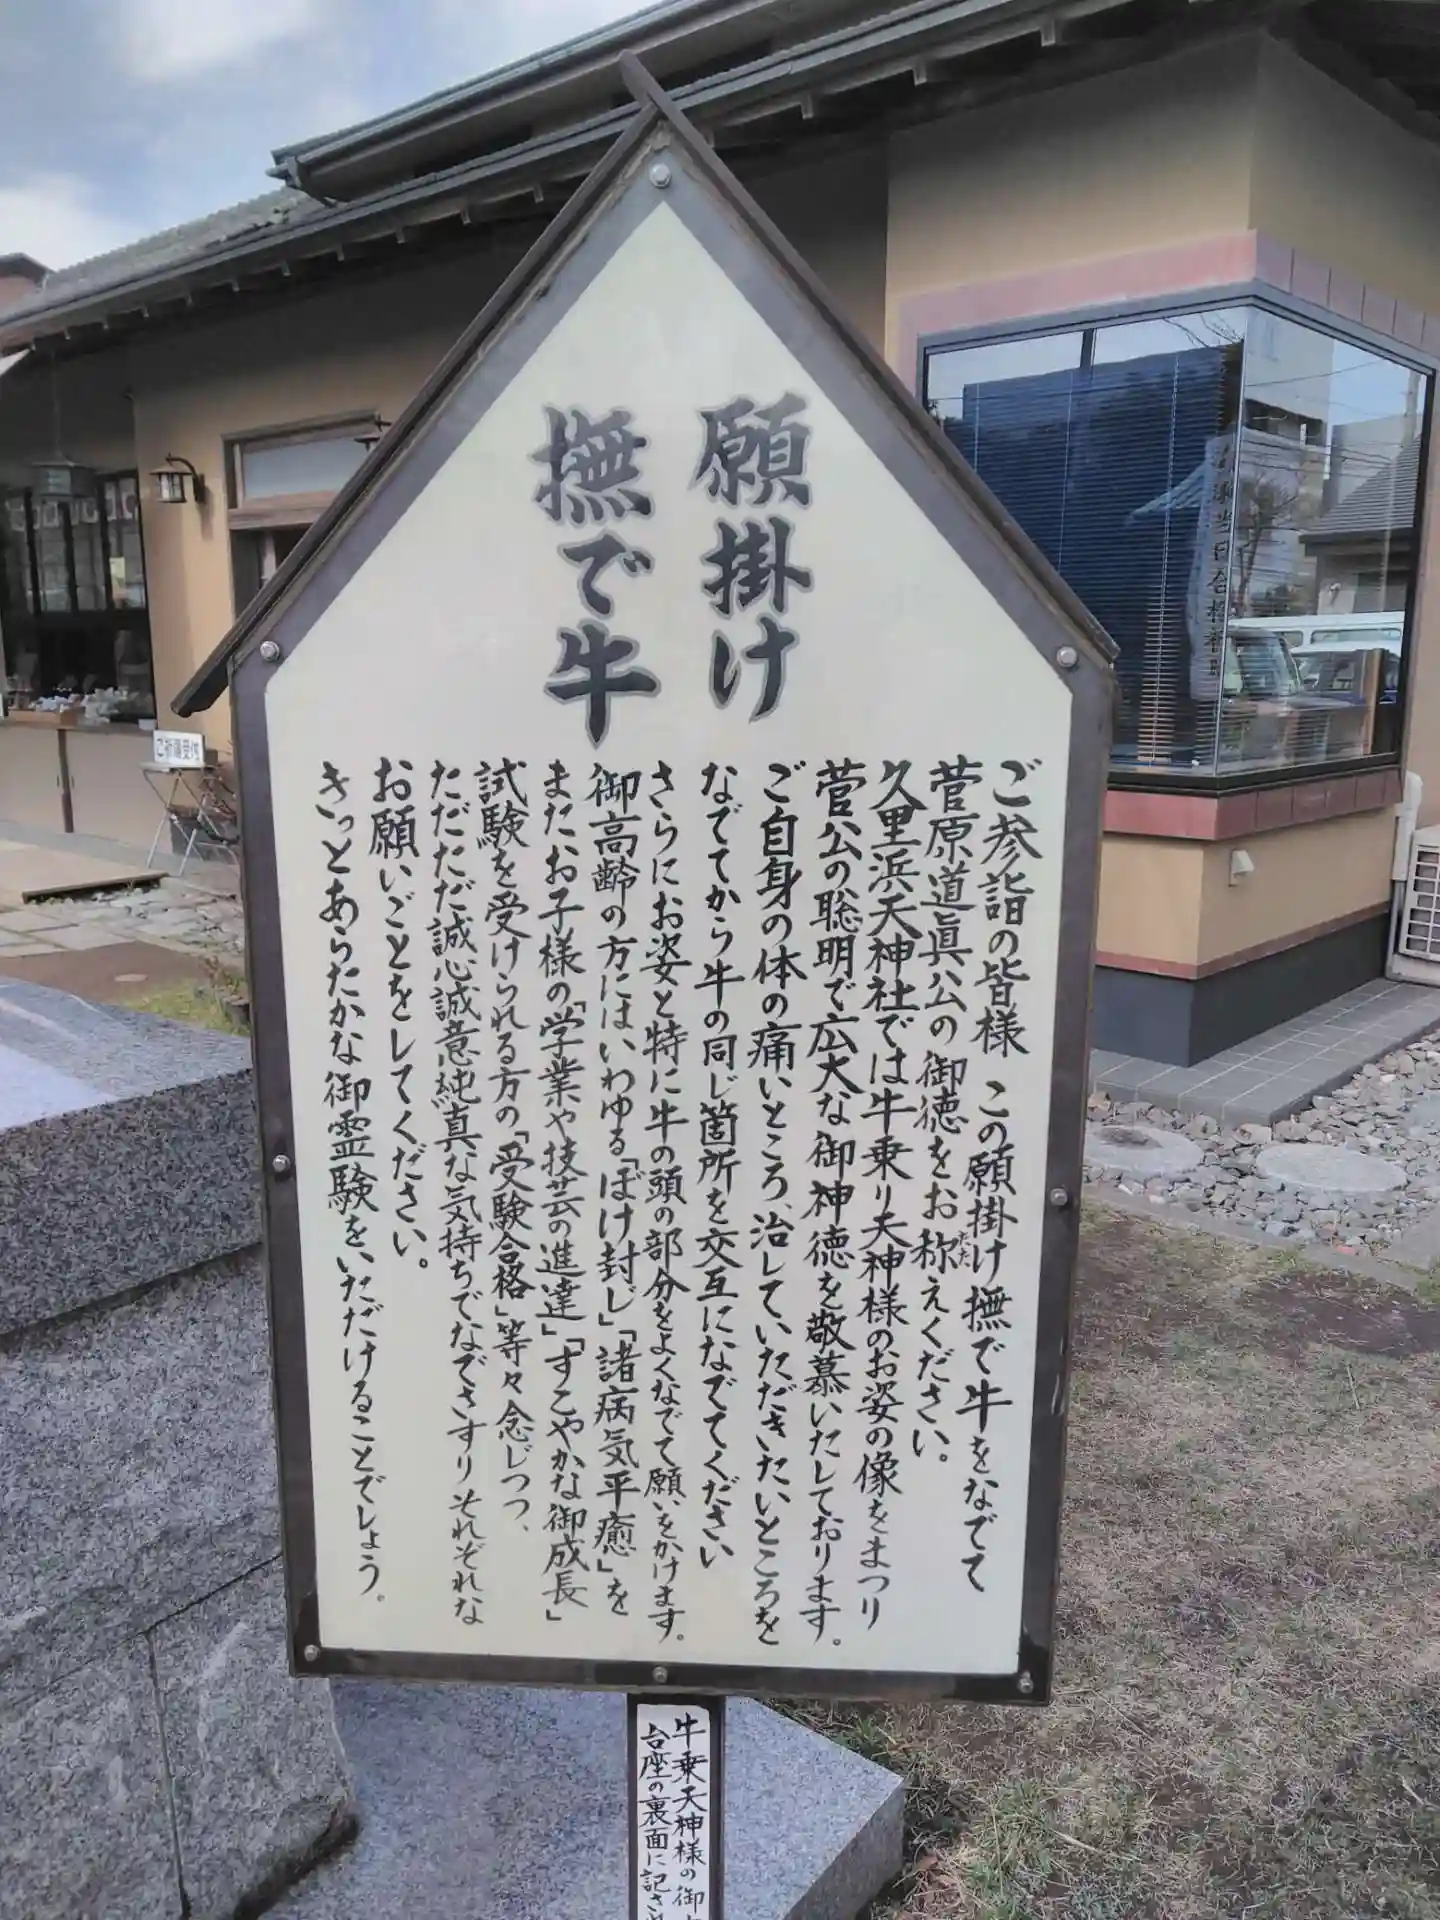 願掛け
撫で牛
ご参詣の皆様 この願掛け撫で牛をなでて
菅原道眞公の御徳をお称えください。
たた
久里浜天神社では牛乗り天神様のお姿の像をまつり
菅公の聡明で広大な御神徳を敬慕いたしております。
ご自身の体の痛いところ、治していただきたいところを
なでてから牛の同じ箇所を交互になでてください
さらにお姿と特に牛の頭の部分をよくなでて願いをかけます。
御高齢の方にはいわゆる「ぼけ封じ」「諸病気平癒」を
またお子様の「学業や技芸の進達」「すこやかな御成長」
試験を受けられる方の「受験合格」等々念じつつ、
ただただ誠心誠意純真な気持ちでなでさすりそれぞれな
お願いごとをしてください。
きっとあらたかな御霊験をいただけることでしょう。
牛乗天神様の御
台座の裏面に記され
ご祈願受付